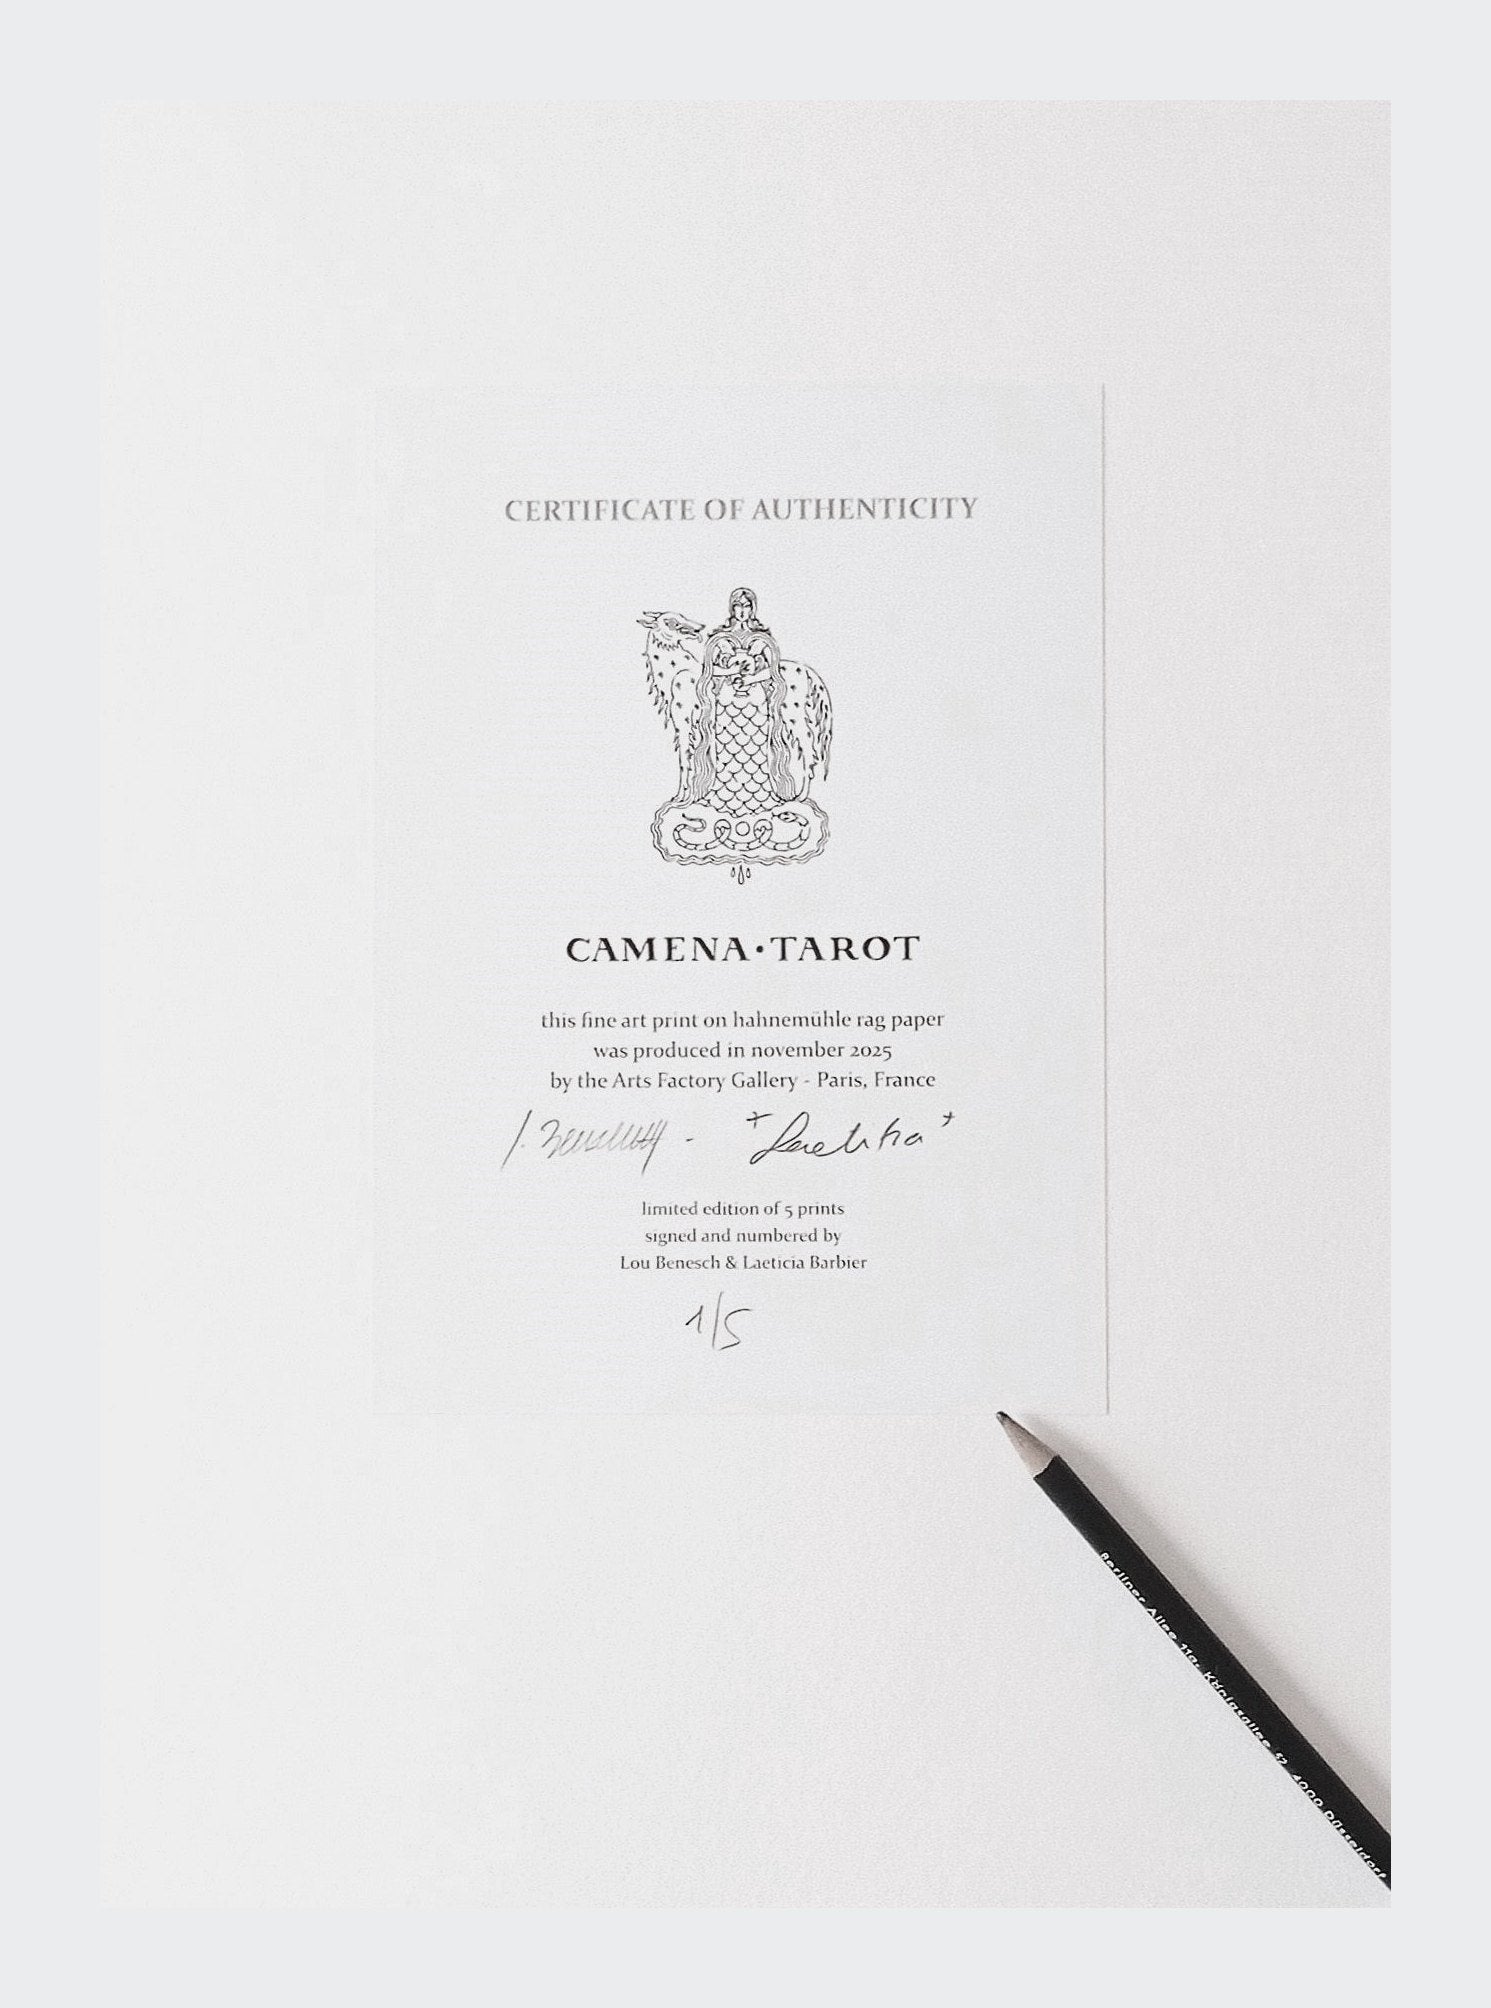 CERTIFICATE OF AUTHENTICITY
CAMENA·TAROT
this fine art print on hahnemühle rag paper
was produced in november 2025
by the Arts Factory Gallery - Paris, France
l. Benesch - "Laetitia"
limited edition of 5 prints
signed and numbered by
Lou Benesch & Laeticia Barbier
1/5
Berliner Allee 11a, Königsallee 52, 4000 Düsseldorf